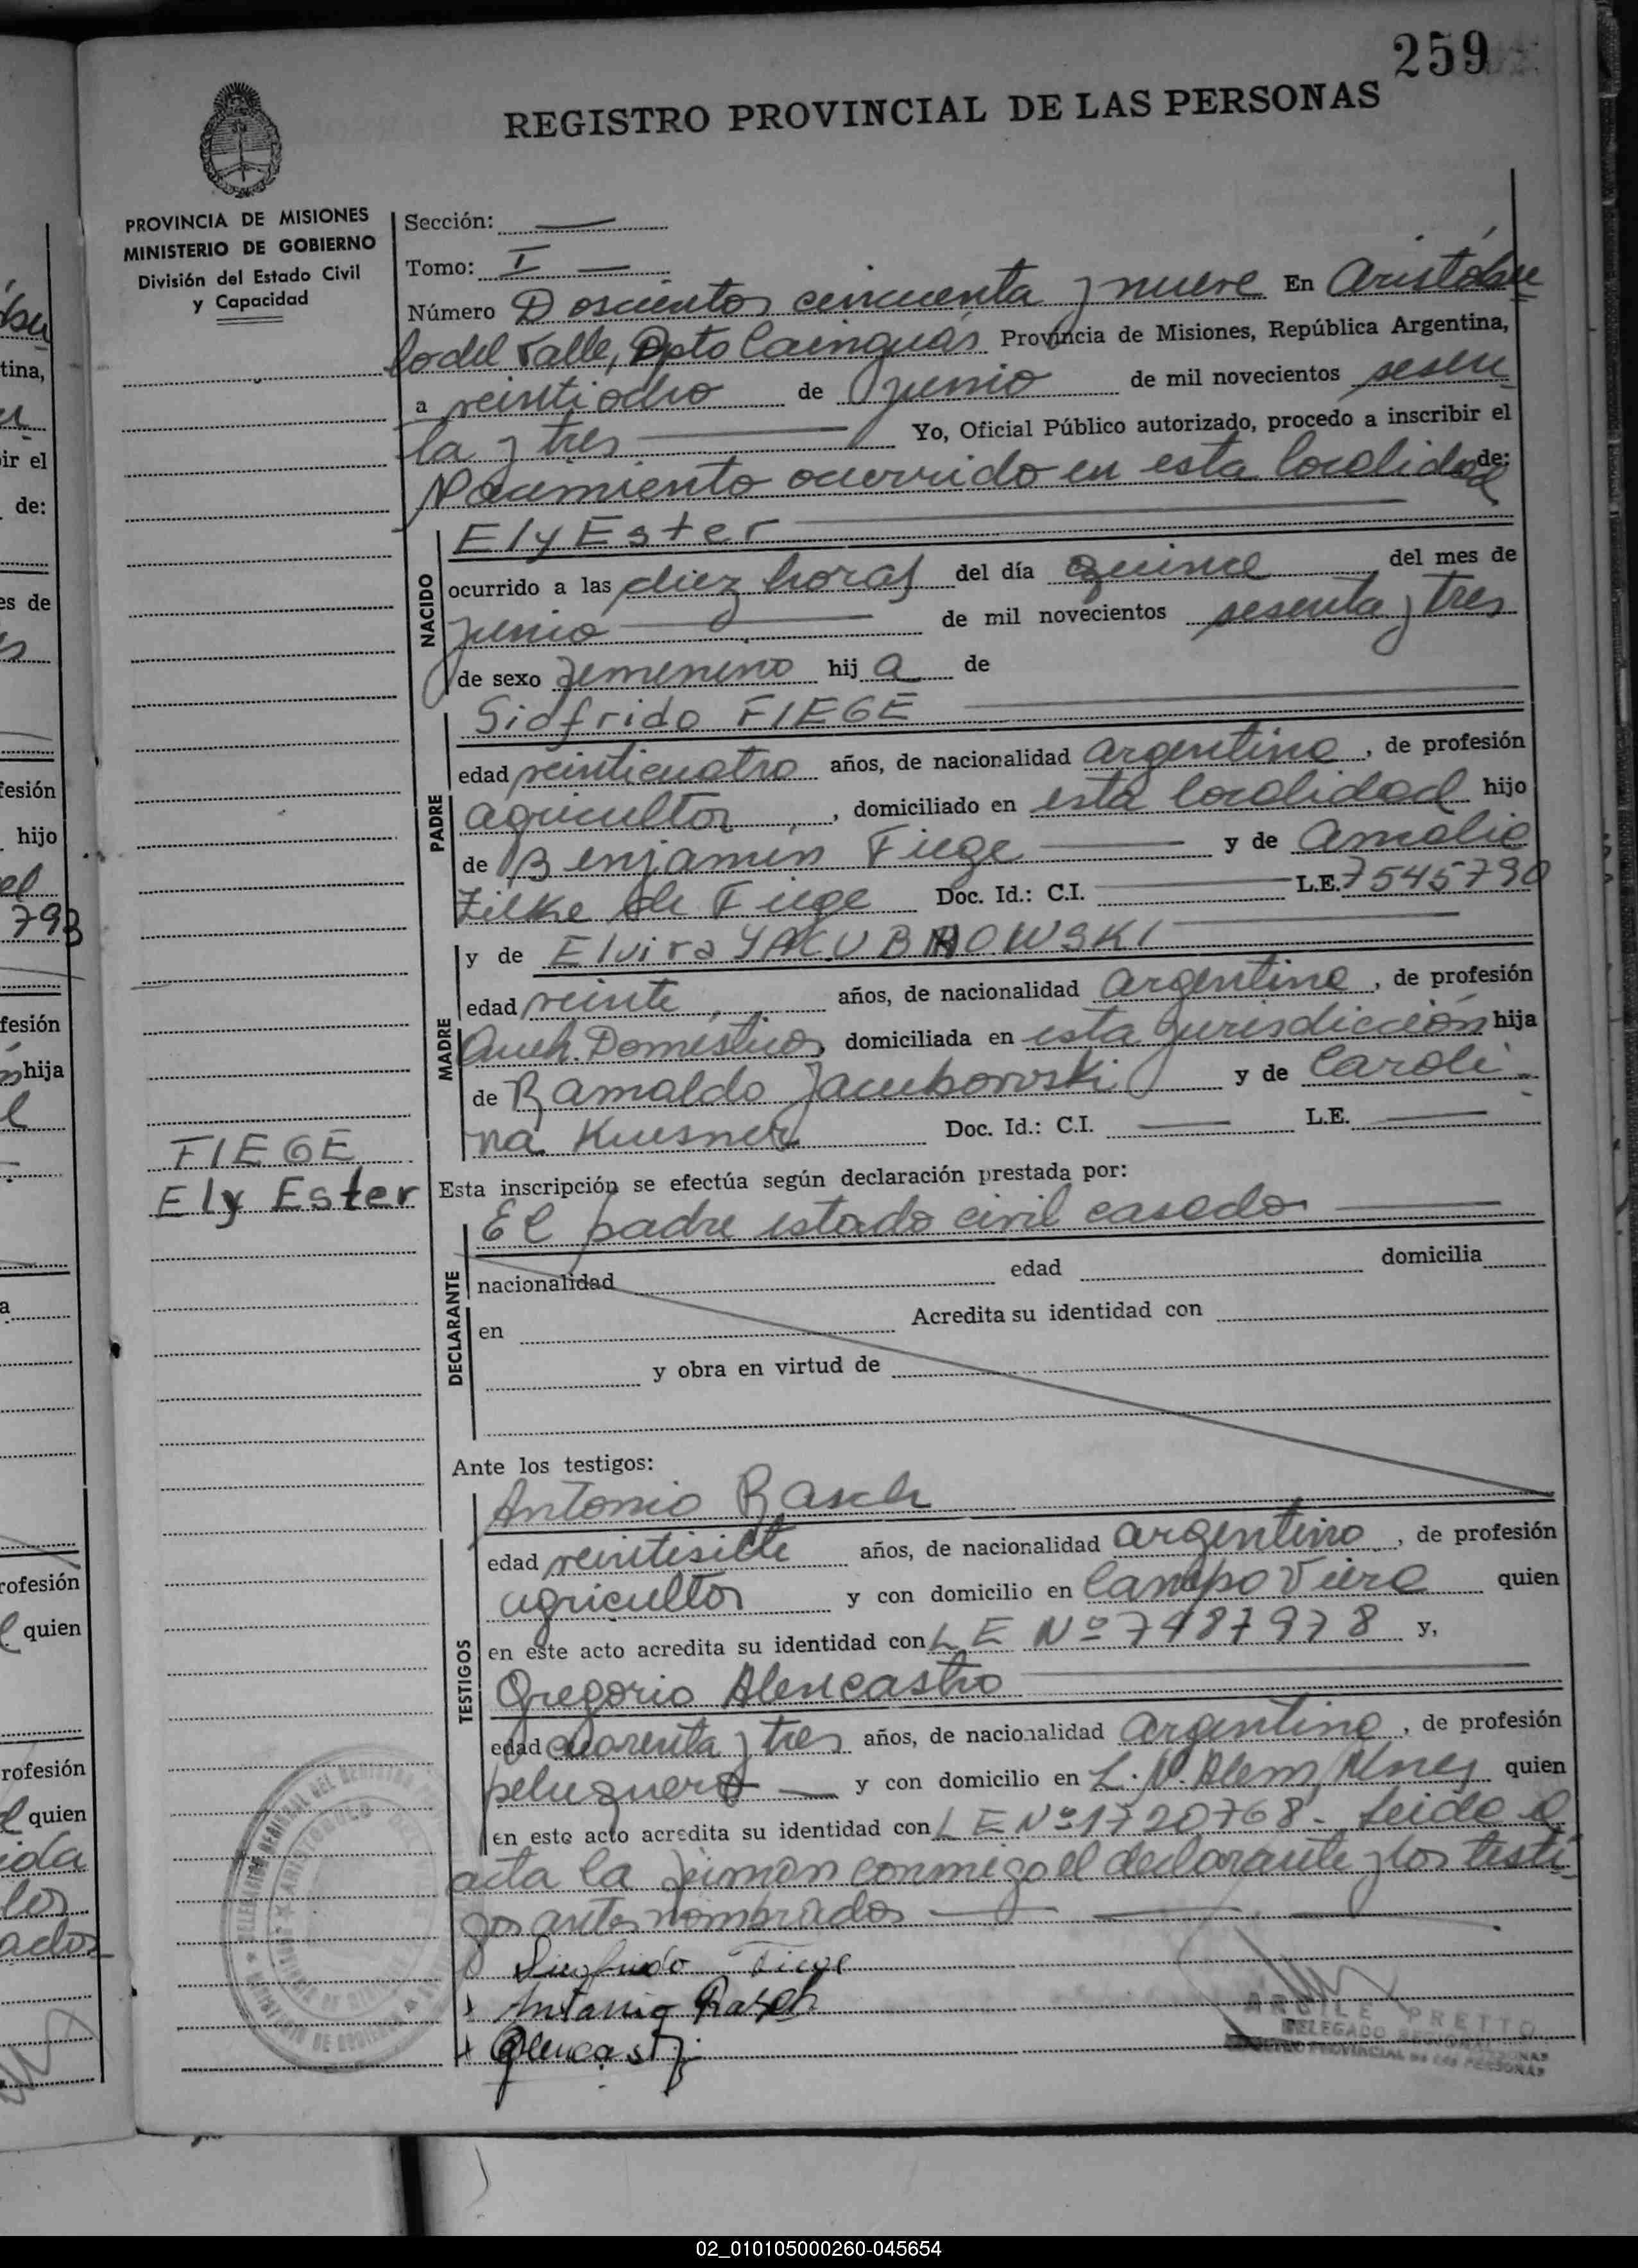 259
REGISTRO PROVINCIAL DE LAS PERSONAS
PROVINCIA DE MISIONES
MINISTERIO DE GOBIERNO
División del Estado Civil
y Capacidad
Sección: —
Tomo: I —
Número Doscientos cincuenta y nueve En Aristóbu
lo del Valle, Dpto Cainguás Provincia de Misiones, República Argentina,
a veintiocho de junio de mil novecientos sesen
ta y tres Yo, Oficial Público autorizado, procedo a inscribir el
Nacimiento ocurrido en esta localidad de:
NACIDO
Ely Ester
ocurrido a las diez horas del día quince del mes de
junio de mil novecientos sesenta y tres
de sexo femenino hij a de
PADRE
Sigfrido FIEGE
edad veinticuatro años, de nacionalidad argentina, de profesión
agricultor, domiciliado en esta localidad hijo
de Benjamin Fiege y de Amalia
Zilke de Fiege Doc. Id.: C.I. — L.E. 7545790
MADRE
y de Elvira
edad veinte años, de nacionalidad argentina, de profesión
Queh. Domésticos, domiciliada en esta jurisdicción hija
de Ramaldo Jacuborvski y de Caroli
na Kuesner Doc. Id.: C.I. — L.E. —
FIEGE
Ely Ester
Esta inscripción se efectúa según declaración prestada por:
DECLARANTE
El padre estado civil casado
nacionalidad edad domicilia
en Acredita su identidad con
y obra en virtud de
Ante los testigos:
TESTIGOS
Antonio Rasch
edad veintisiete años, de nacionalidad argentino, de profesión
agricultor y con domicilio en Campo Viera quien
en este acto acredita su identidad con L E Nº 7487978 y,
Gregorio Alencastro
edad cuarenta y tres años, de nacionalidad argentina, de profesión
peluquero — y con domicilio en L. N. Alem, Mnes quien
en este acto acredita su identidad con L E Nº 1720768 - Leida el
acta la firman conmigo el declarante y los testi
gos antes nombrados
Siegfrido Fiege
Antonio Rasch
Alencastr
PRETTO
DELEGADO
02_010105000260-045654